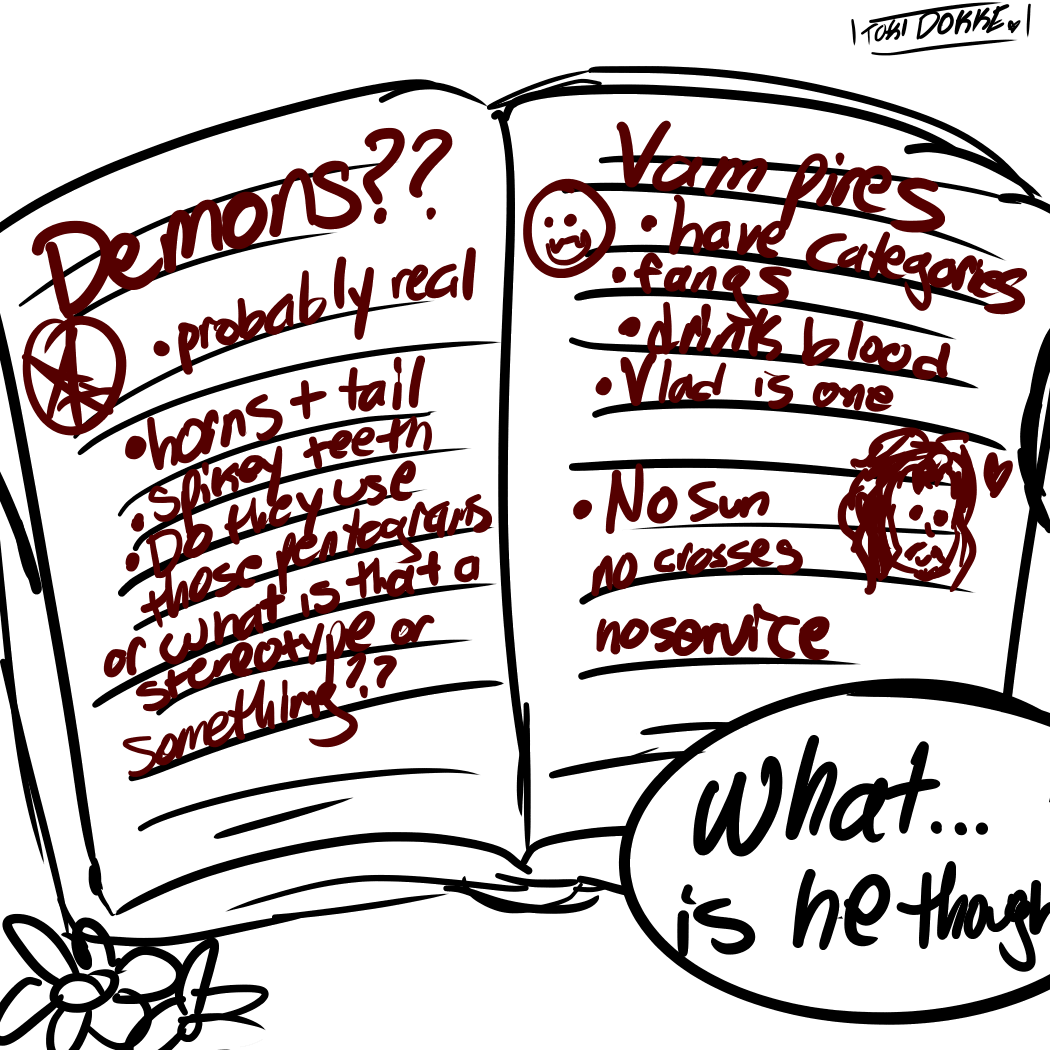 TOKI DOKKE.
Demons??
• probably real
• horns + tail
• Spikey teeth
• Do they use
those pentegrams
or what is that a
stereotype or
something??
Vampires
• have categories
• fangs
• drink blood
• Vlad is one
• No sun
no crosses
no service
What...
is he though